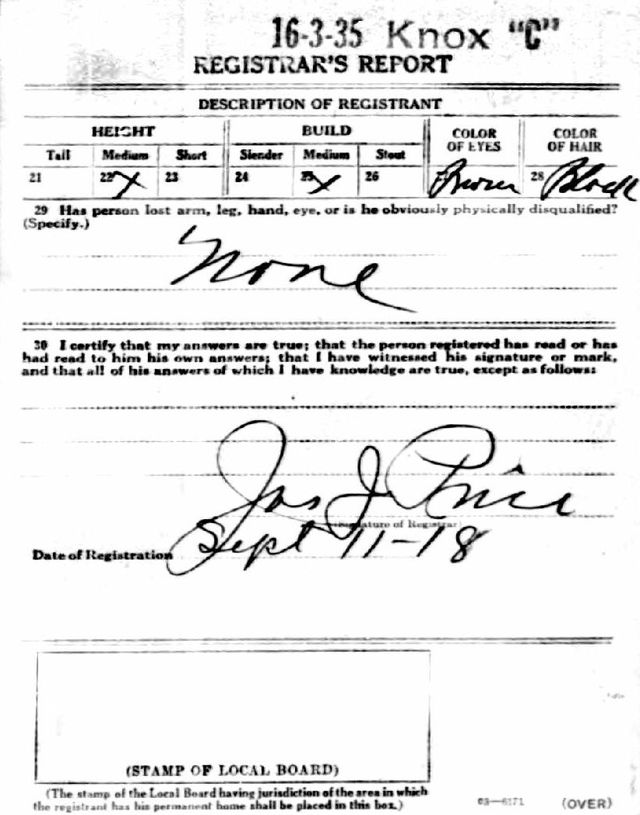 16-3-35 Knox "C"
REGISTRAR'S REPORT
DESCRIPTION OF REGISTRANT
HEIGHT BUILD COLOR OF EYES COLOR OF HAIR
Tall Medium Short Slender Medium Stout
21 22 X 23 24 25 X 26 Brown 28 Black
29 Has person lost arm, leg, hand, eye, or is he obviously physically disqualified?
(Specify.)
None
30 I certify that my answers are true; that the person registered has read or has
had read to him his own answers; that I have witnessed his signature or mark,
and that all of his answers of which I have knowledge are true, except as follows:
Jas J Price
(Signature of Registrar)
Date of Registration Sept 11-18
(STAMP OF LOCAL BOARD)
(The stamp of the Local Board having jurisdiction of the area in which
the registrant has his permanent home shall be placed in this box.)
03-6171 (OVER)